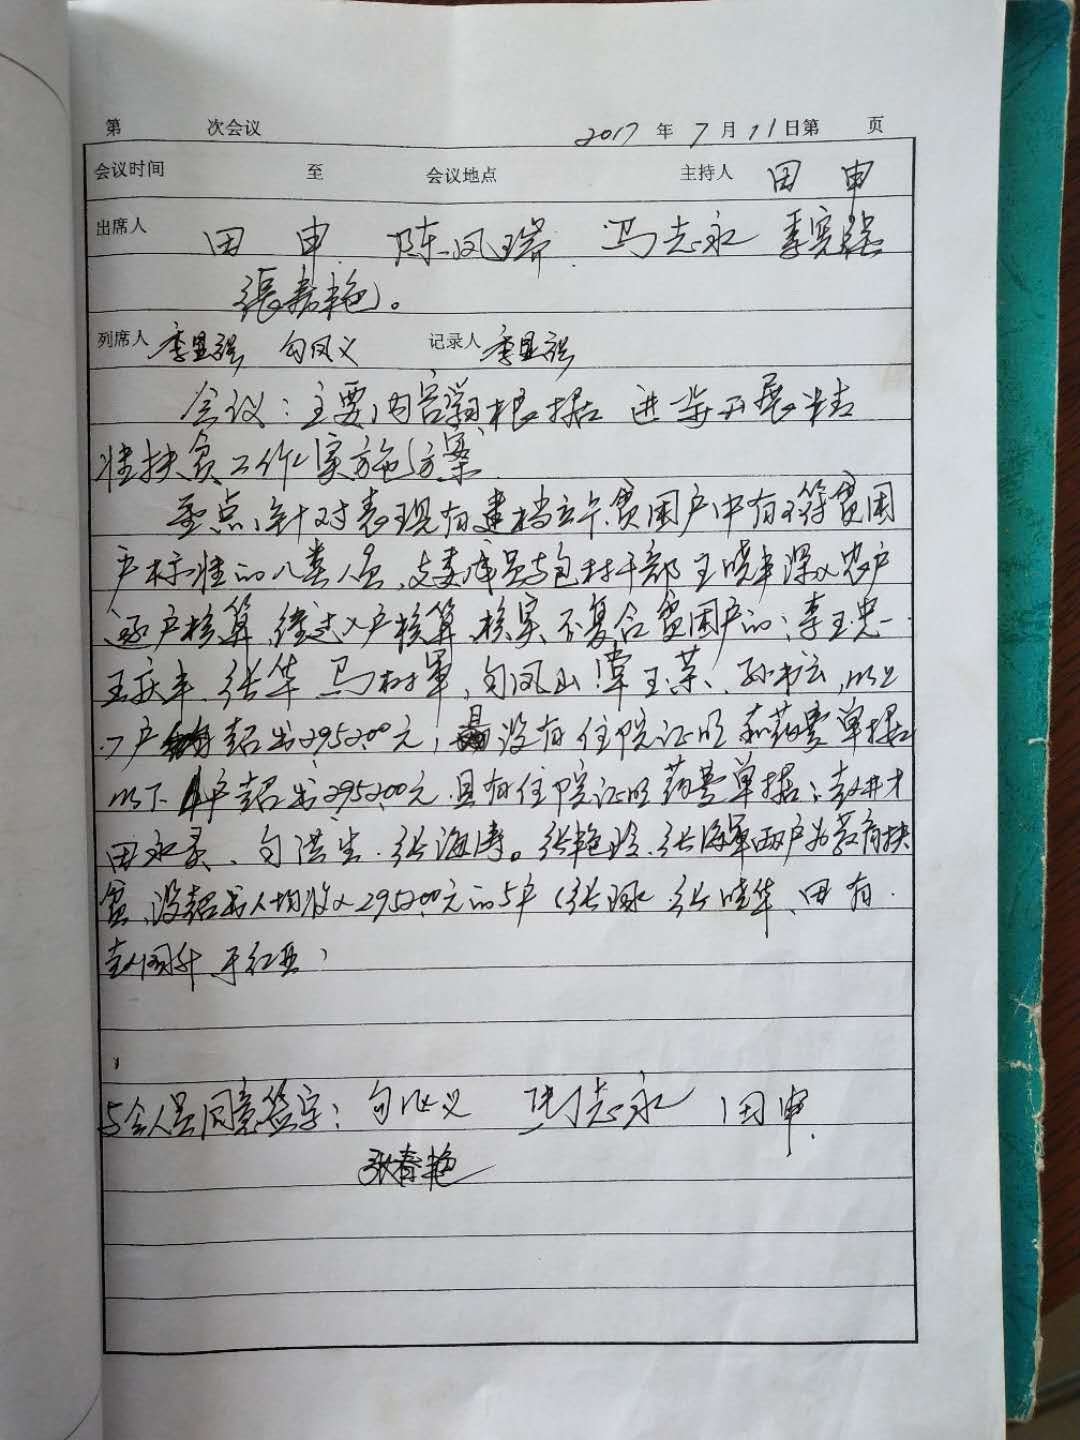 第 次会议 2017年7月11日第 页
会议时间 至 会议地点 主持人 田申
出席人 田申 陈凤瑞 冯志永 李宪强
張春艳。
列席人 李显强 勾凤义 记录人 李显强
会议:主要内容 根据 进一步开展精
准扶贫工作实施方案
重点针对表现有建档立卡贫困户中有不符贫困
户标准的八类人员,支委成员与包村干部王晓丰深入农户
逐户核算,经过入户核算,核实不复合贫困户的:李玉忠
王庆丰 张华 马树軍,勾凤山 覃玉荣、孙书云,以上
7户 超出2952.00元,且没有住院证明和药费单据
以下 户超出2952.00元,具有住院证明药费单据:赵井才
田永 、勾洪生.张海涛。张艳玲.张海軍两户为教育扶
贫,没超出人均收入2952.00元的5户(张 张晓华、田有.
国升 于红
与会人员同意签字:勾凤义 冯志永 田申
张春艳